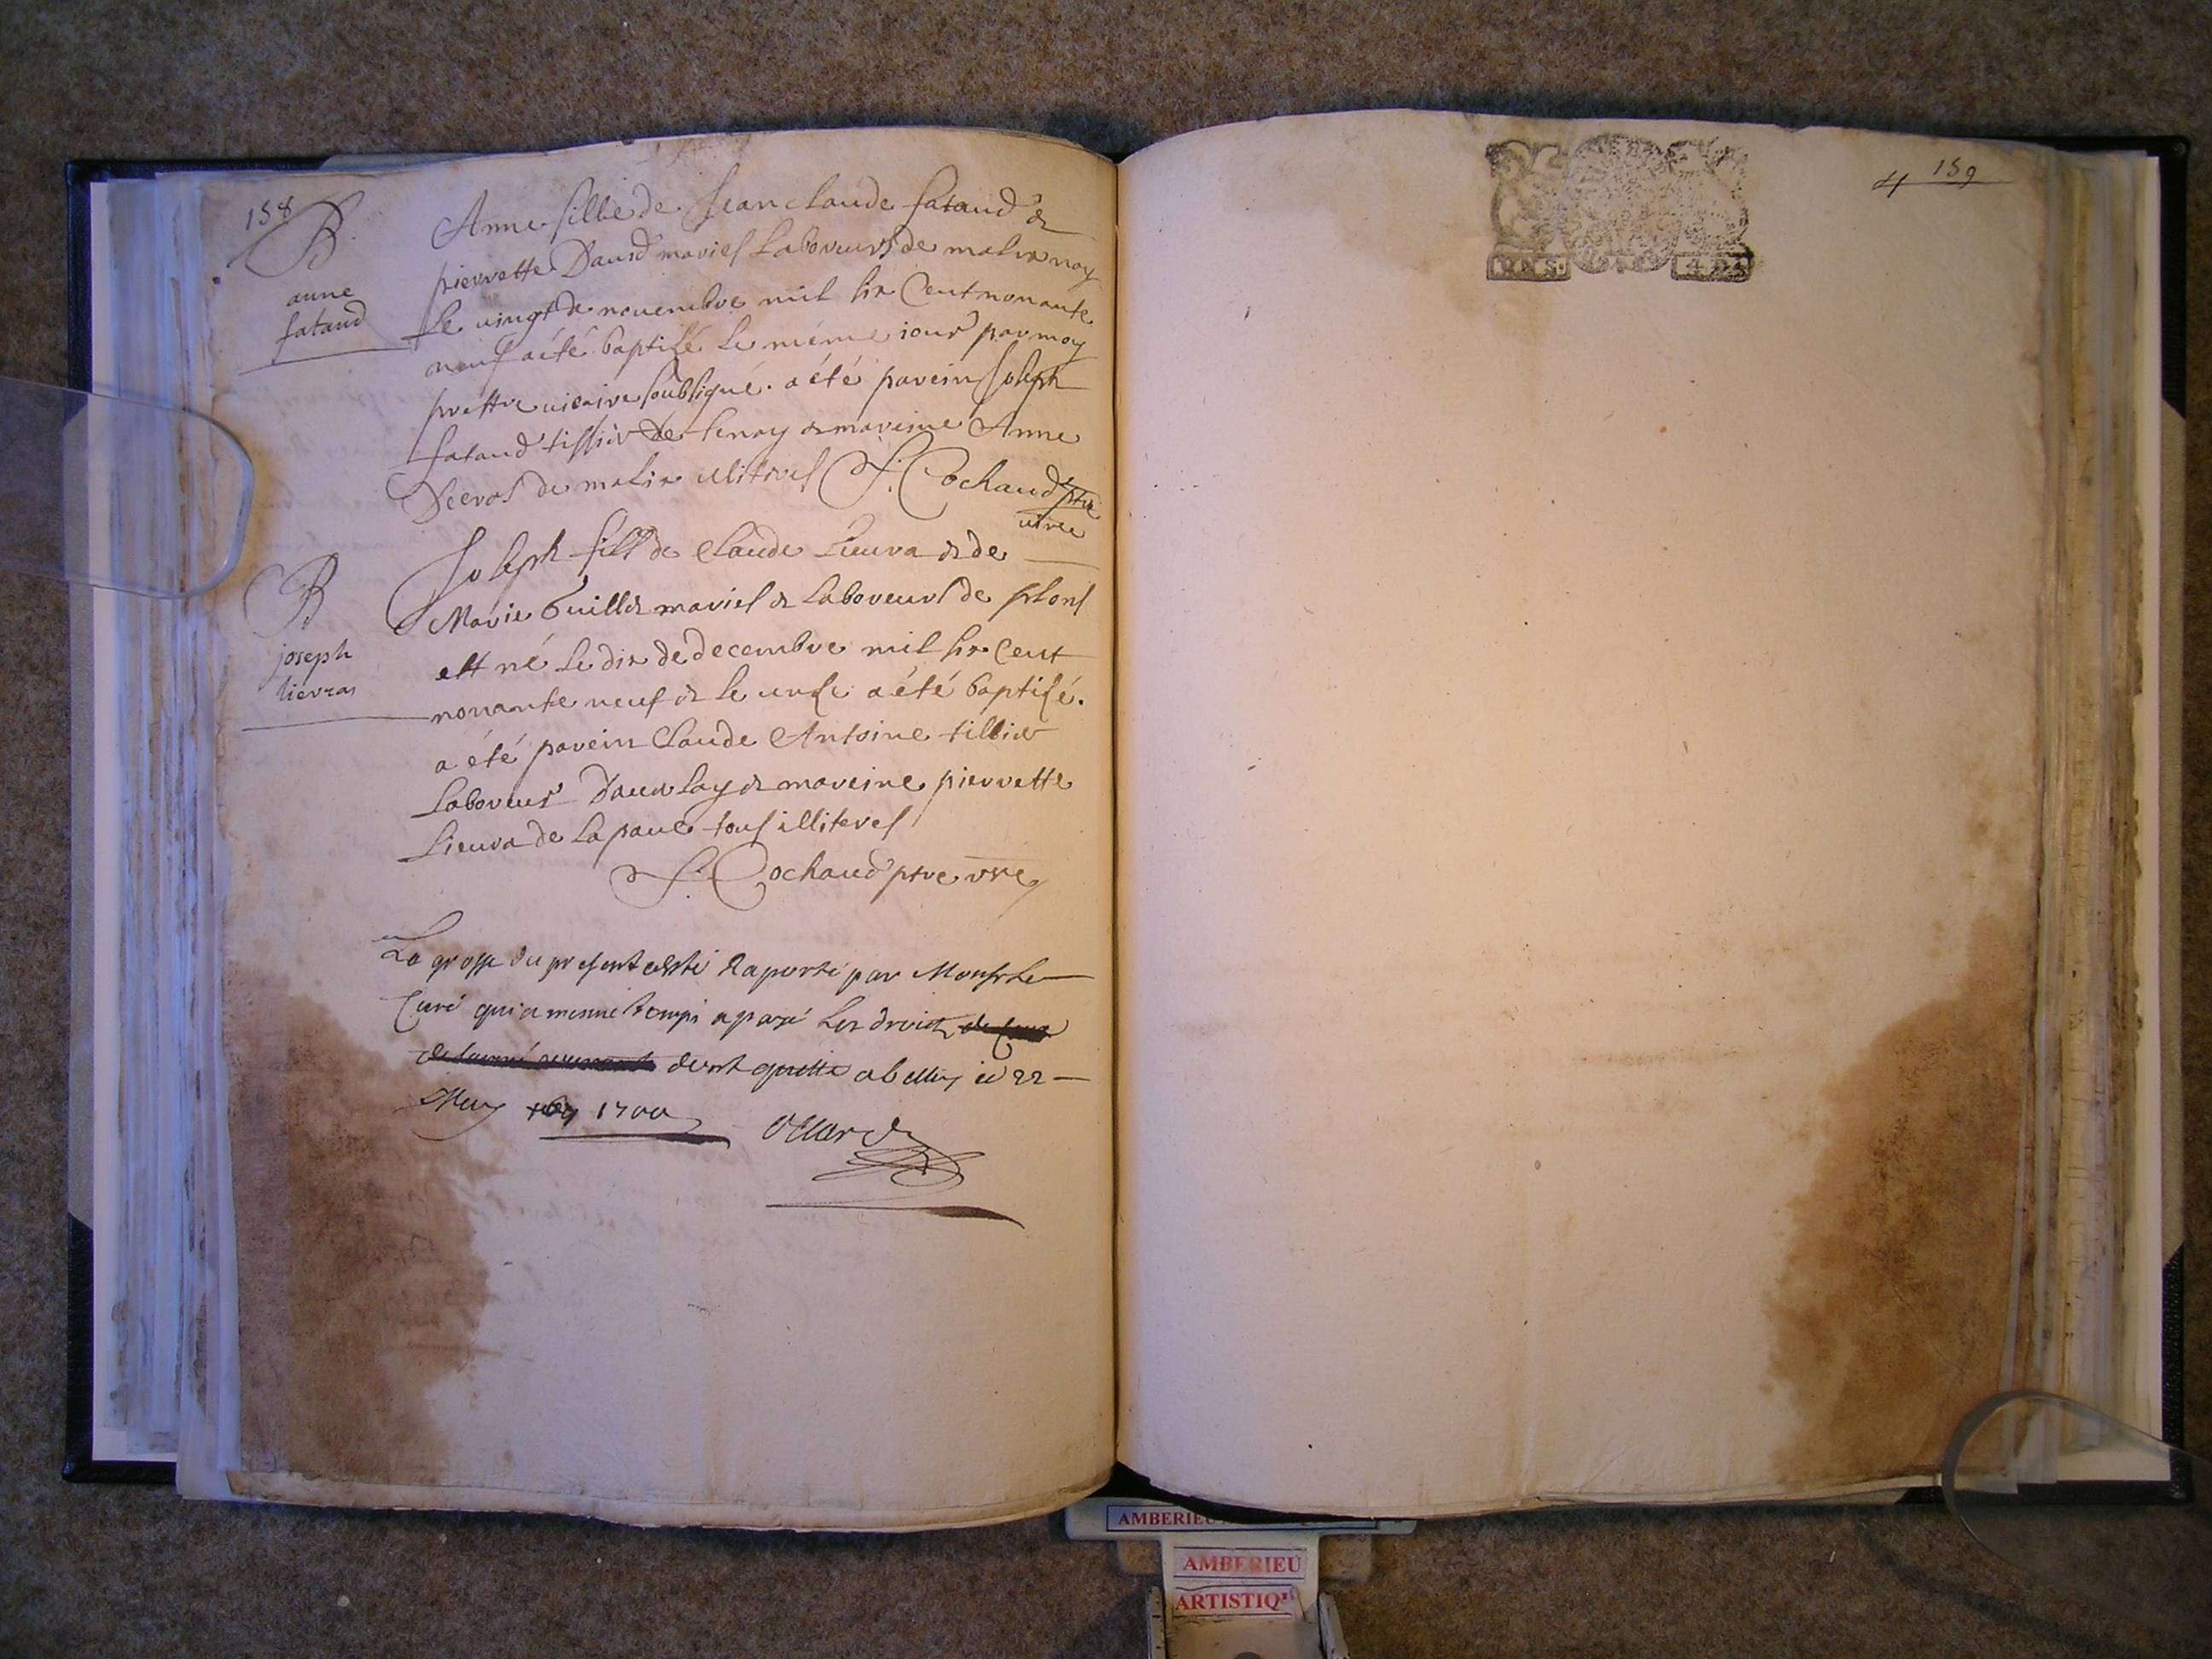 158
B
anne
fataud
Anne fille de Jean claude fataud &
pierrette Daud mariés Laboureurs de malix nay
Le vingt de novembre mil six Cent nonante
neuf a été baptisé le méme iour par moy
prettre vicaire soubsigné. a été parein Joseph
fataud tissier de tenay & mareine Anne
de malix illitrés J. Cochaud ptre
vire
B
joseph
lievras
Joseph fils de Claude Lieura & de
Marie Guillet mariés & Laboreurs de plons
est né le dix de decembre mil six Cent
nonante neuf & le unse a été baptisé.
a été parein Claude Antoine tissier
Laboreur & mareine pierrette
Lieura de la paue tous illiterés
J. Cochaud ptre vre
La grosse du present a esté Raporté par Monsr Le
Curé qui a mesme temps a payé Les droits
dont quitte a belley ce 22
May 1700
159
AMBERIEU
AMBERIEU
ARTISTIQ